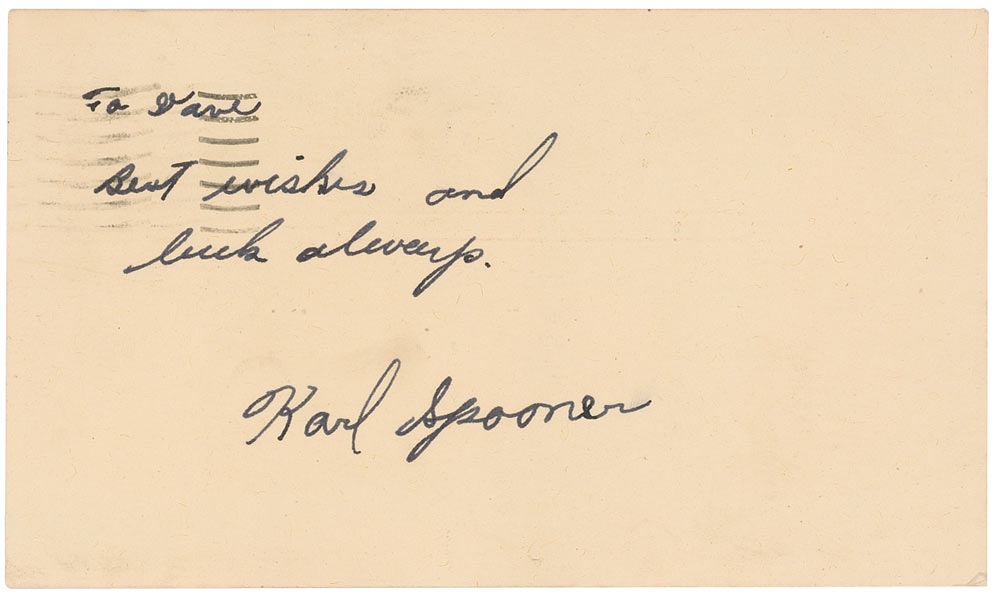 To Dave
Best wishes and
luck always.
Karl Spooner